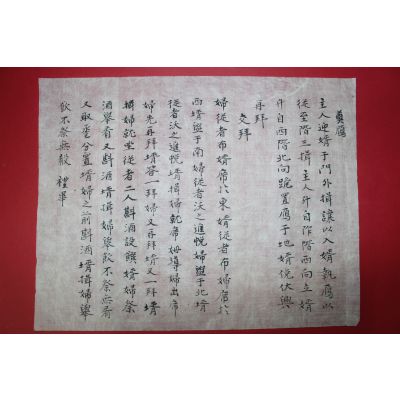 奠鴈
主人迎壻于門外揖讓以入壻執鴈以
從至階三揖主人升自阼階西向立壻
升自西階北向跪置鴈于地壻俛伏興
再拜
交拜
婦從者布壻席於東壻從者布婦席於
西壻盥于南婦從者沃之進帨婦盥于北壻
從者沃之進帨壻揖婦就席姆導婦出席
婦先再拜壻答一拜婦又再拜壻又一拜壻
揖婦就坐從者二人斟酒設饌壻婦祭
酒舉肴又斟酒壻揖婦舉飲不祭無肴
又取巹分置壻婦之前斟酒壻揖婦舉
飲不祭無肴 禮畢